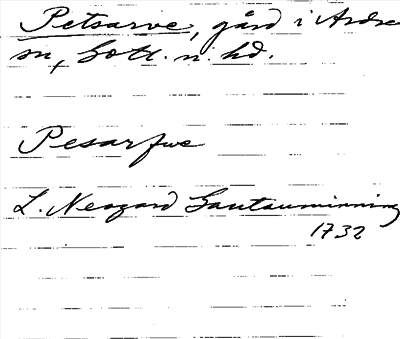 Petsarve, gård i Ardre
sn, Gotl. n. hd.
Pesarfwe
L. Neogard Gautauminning
1732